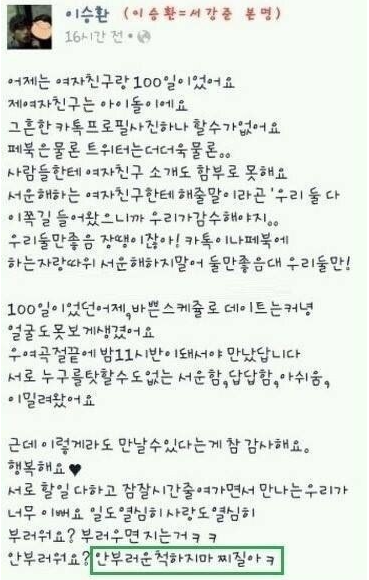 이승환 (이승환=서강준 본명)
16시간 전 •
어제는 여자친구랑 100일이었어요
제여자친구는 아이돌이에요
그흔한 카톡프로필사진하나 할수가없어요
페북은물론 트위터는더더욱물론。。
사람들한테 여자친구 소개도 함부로 못해요
서운해하는 여자친구한테 해줄말이라곤 '우리 둘 다
이쪽길 들어왔으니까 우리가감수해야지。。
우리둘만좋음 장땡이잖아! 카톡이나페북에
하는자랑따위 서운해하지말어 둘만좋음대 우리둘만!
100일이었던어제,바쁜스케쥴로 데이트는커녕
얼굴도못보게생겼어요
우여곡절끝에 밤11시반이돼서야 만났답니다
서로 누구를탓할수도없는 서운함,답답함,아쉬움,
이밀려왔어요
근데 이렇게라도 만날수있다는게 참 감사해요.
행복해요♥
서로 할일 다하고 잠잘시간줄여가면서 만나는우리가
너무 이뻐요 일도열심히사랑도열심히
부러워요? 부러우면 지는거 ㅋㅋ
안부러워요? 안부러운척하지마 찌질아 ㅋ